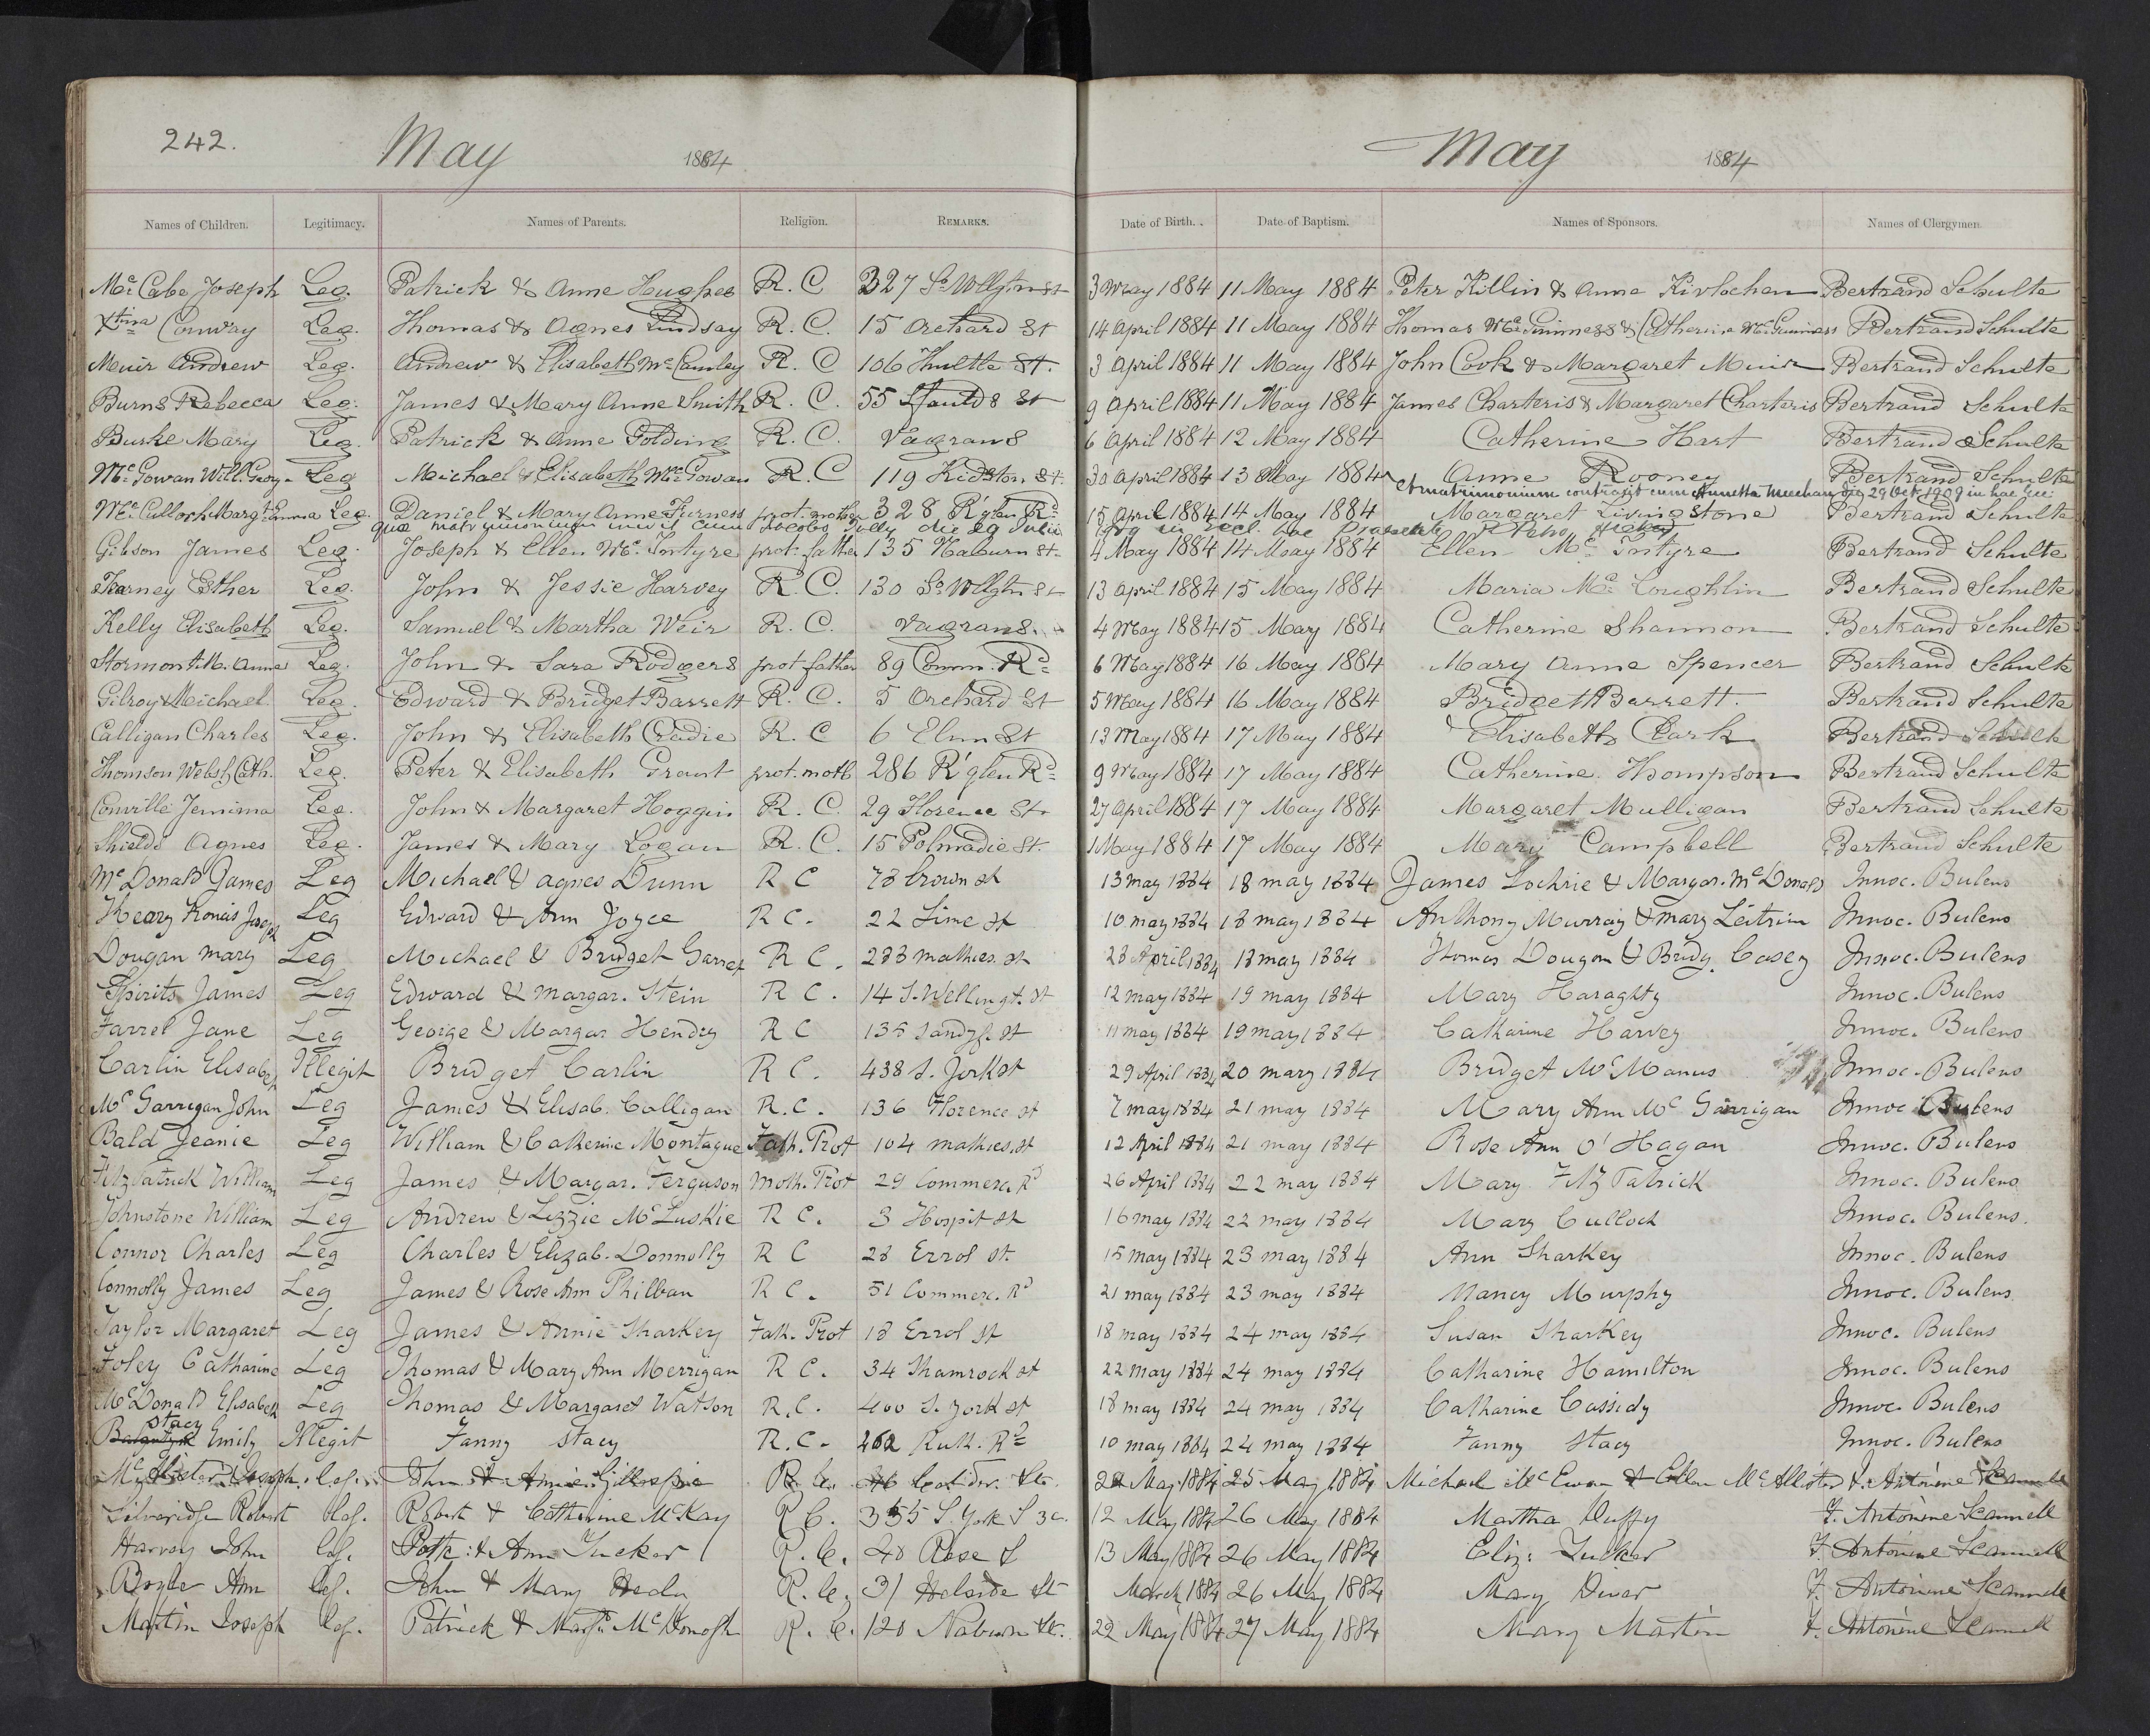 242. May 1884 May 1884
Names of Children. Legitimacy. Names of Parents. Religion. REMARKS. Date of Birth. Date of Baptism. Names of Sponsors. Names of Clergymen.
Mc Cabe Joseph Leg. Patrick & Anne Hughes R. C 327 So Wllgtn St 3 May 1884 11 May 1884 Peter Killin & Anne Bertrand Schulte
Xtina Conway Leg. Thomas & Agnes Lindsay R. C. 15 Orchard St 14 April 1884 11 May 1884 Thomas Mc Guinness & Catherine Mc Guinness Bertrand Schulte
Meuir Andrew Leg. Andrew & Elisabeth Mc Cauley R. C 106 St. 3 April 1884 11 May 1884 John Cook & Margaret Muir Bertrand Schulte
Burns Rebecca Leg. James & Mary Anne Smith R. C. 55 St 9 April 1884 11 May 1884 James Charteris & Margaret Charteris Bertrand Schulte
Burke Mary Leg. Patrick & Anne Golding R. C. Vagrans 6 April 1884 12 May 1884 Catherine Hart Bertrand Schulte
Mc Gowan Will. George Leg Michael & Elisabeth Mc Gowan R. C 119 Kidston St. 30 April 1884 13 May 1884 Anne Rooney Bertrand Schulte
et matrimonium contraxit cum Annetta Meehan die 29 Oct. 1909 in hac
Mc Culloch Margt Emma Leg. Daniel & Mary Anne Furness prot. mother 328 R'glen Rd 15 April 1884 14 May 1884 Margaret Livingstone Bertrand Schulte
quae matrimonium cum Jacobo die 29 Julii
Gibson James Leg. Joseph & Ellen Mc Intyre prot. father 135 Naburn St. 4 May 1884 14 May 1884 Ellen Mc Intyre Bertrand Schulte
Kearney Esther Leg. John & Jessie Harvey R. C. 130 So Wllgtn St 13 April 1884 15 May 1884 Maria Mc Loughlin Bertrand Schulte
Kelly Elisabeth Leg. Samuel & Martha Weir R. C. Vagrans. 4 May 1884 15 May 1884 Catherine Shannon Bertrand Schulte
Stormont M. Anne Leg. John & Sara Rodgers prot. father 89 Comm. Rd 6 May 1884 16 May 1884 Mary Anne Spencer Bertrand Schulte
Gilroy Michael Leg. Edward & Bridget Barrett R. C. 5 Orchard St 5 May 1884 16 May 1884 Bridget Barrett. Bertrand Schulte
Calligan Charles Leg. John & Elisabeth Cradie R. C 6 Elm St 13 May 1884 17 May 1884 Elisabeth Clark Bertrand Schulte
Thomson Welsh Cath. Leg. Peter & Elisabeth Grant prot. moth 286 R'glen Rd 9 May 1884 17 May 1884 Catherine Thompson Bertrand Schulte
Conville Jemima Leg. John & Margaret Hoggin R. C. 29 Florence St 27 April 1884 17 May 1884 Margaret Mulligan Bertrand Schulte
Shields Agnes Leg. James & Mary Logan R. C. 15 Polmadie St. 1 May 1884 17 May 1884 Mary Campbell Bertrand Schulte
Mc Donald James Leg Michael & Agnes Dunn R C 78 Crown st 13 may 1884 18 may 1884 James Lochrie & Margar. Mc Donald Innoc. Bulens
Keary Joseph Leg Edward & Ann Joyce R C. 22 Lime st 10 may 1884 18 may 1884 Anthony Murray & mary Leitrim Innoc. Bulens
Dougan mary Leg Michael & Bridget R C. 288 mathies. st 28 April 1884 18 may 1884 Thomas Dougan & Bridg. Casey Innoc. Bulens
Spirits James Leg Edward & margar. Stein R C. 14 S. Wellingt. st 12 may 1884 19 may 1884 Mary Haraghty Innoc. Bulens
Farrel Jane Leg George & Margar Hendry R C 135 Sandyf. st 11 may 1884 19 may 1884 Catharine Harvey Innoc. Bulens
Carlin Elisabeth Illegit Bridget Carlin R C. 438 S. York st 29 April 1884 20 may 1884 Bridget Mc Manus Innoc. Bulens
Mc Garrigan John Leg James & Elisab. Colligan R. C. 136 Florence st 7 may 1884 21 may 1884 Mary Ann Mc Garrigan Innoc Bulens
Bald Jeanie Leg William & Catherine Montague Fath. Prot 104 mathies. st 12 April 1884 21 may 1884 Rose Ann O' Hagan Innoc. Bulens
Fitz Patrick William Leg James & Margar. Ferguson Moth. Prot 29 Commerc. Rd 26 April 1884 22 may 1884 Mary Fitz Patrick Innoc. Bulens
Johnstone William Leg Andrew & Lizzie Mc Luskie R C. 3 Hospit st 16 may 1884 22 may 1884 Mary Culloch Innoc. Bulens.
Connor Charles Leg Charles & Elizab. Donnolly R C 28 Errol st. 15 may 1884 23 may 1884 Ann Sharkey Innoc. Bulens
Connolly James Leg James & Rose Ann Philban R C. 51 Commerc. Rd 21 may 1884 23 may 1884 Nancy Murphy Innoc. Bulens
Taylor Margaret Leg James & Annie Sharkey Fath. Prot 18 Errol st 18 may 1884 24 may 1884 Susan Sharkey Innoc. Bulens
Foley Catharine Leg Thomas & Mary Ann Merrigan R C. 34 Shamrock st 22 may 1884 24 may 1884 Catharine Hamilton Innoc. Bulens
Mc Donald Elisabeth Leg Thomas & Margaret Watson R. C. 400 S. York st 18 may 1884 24 may 1884 Catharine Cassidy Innoc. Bulens
Stacy Emily Illegit Fanny Stacy R. C. 262 Ruth. Rd 10 may 1884 24 may 1884 Fanny Stacy Innoc. Bulens
Joseph. Leg. John & Annie Gillespie R. C. 22 May 1884 25 May 1884 Michael Mc Ewan & Ellen Mc Allister F. Antonine Scannell
Robert Leg. Robert & Catherine McKay R C. 355 S. York S 12 May 1884 26 May 1884 Martha Duffy F. Antonine Scannell
Harvey John Leg. Patk: & Ann Tucker R. C. 40 Rose S 13 May 1884 26 May 1884 Eliz: Tucker F. Antonine Scannell
Boyle Ann Leg. John & Mary Healy R. C. 31 St March 1884 26 May 1884 Mary Diver F. Antonine Scannell
Martin Joseph Leg. Patrick & Margt. McDonogh R. C. 120 Naburn St. 22 May 1884 27 May 1884 Mary Martin F. Antonine Scannell